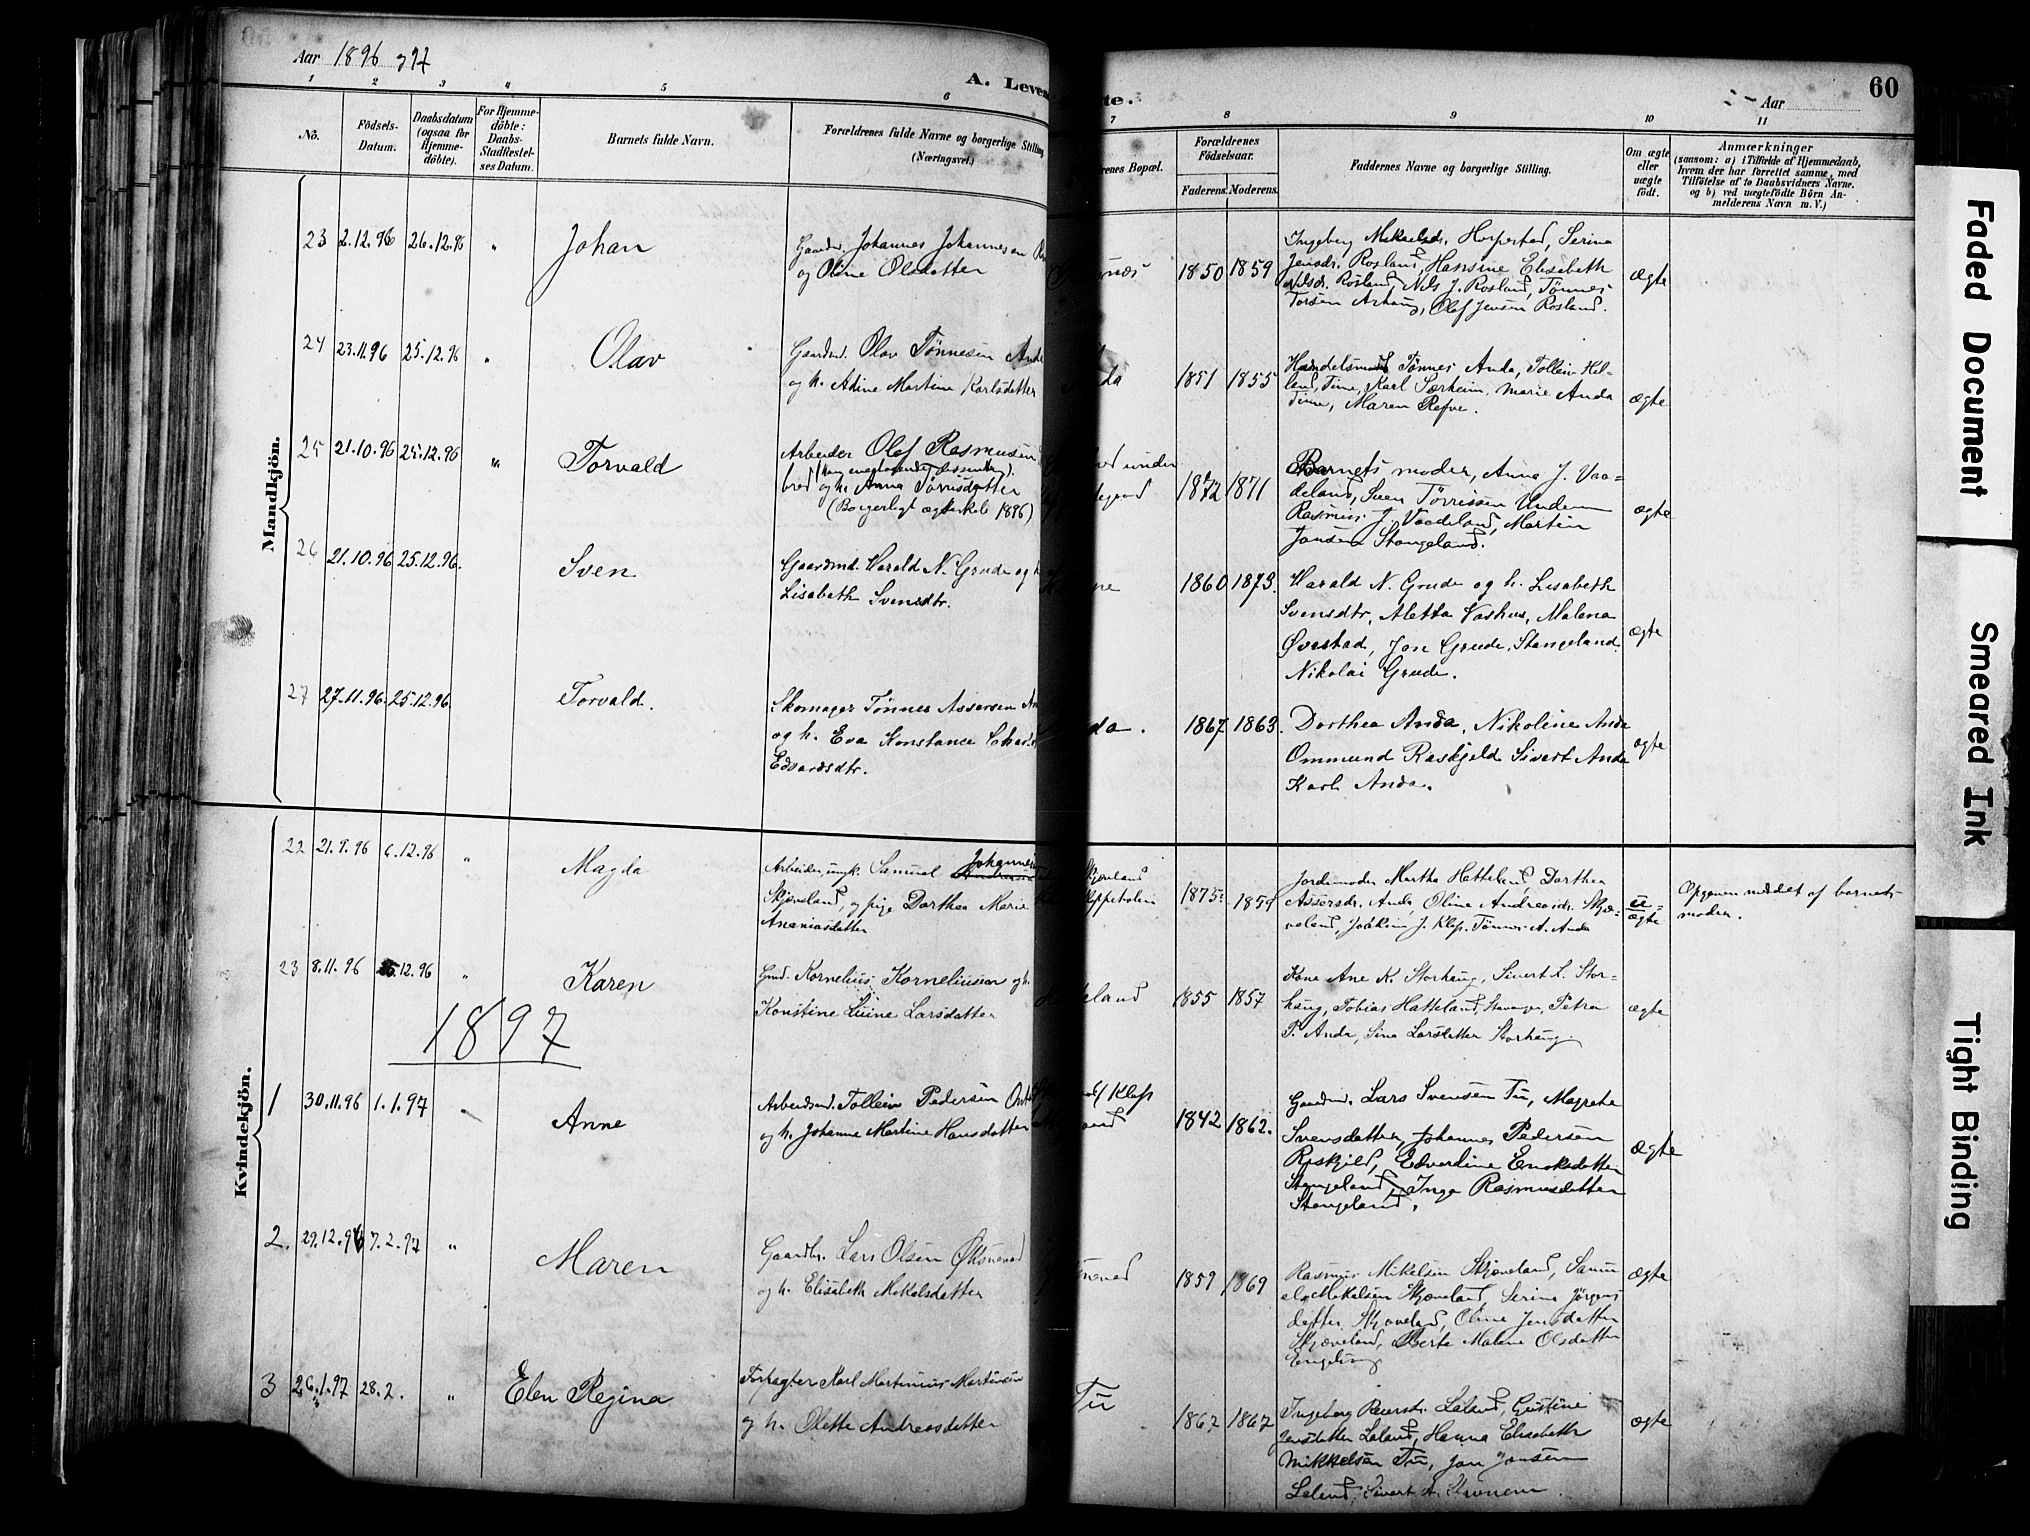 Aar 1896 97
A. Leven
te.
Aar
60
1 2 3 4 5 6 7 8 9 10 11
No.
Födsels-
Datum.
Daabsdatum
(ogsaa for
Hjemme-
döbte).
For Hjemme-
döbte:
Daabs-
Stadfæstel-
ses Datum.
Barnets fulde Navn.
Forældrenes fulde Navne og borgerlige Stilling
(Næringsvei.)
renes Bopæl.
Forældrenes
Födselsaar.
Faderens. Moderens.
Faddernes Navne og borgerlige Stilling.
Om ægte
eller
uægte
födt.
Anmærkninger
(saasom: a) i Tilfælde af Hjemmedaab,
hvem der har forrettet samme, med
Tilföielse af to Daabsvidners Navne.
og b) ved uægtefödte Börn An-
melderens Navn m. V.)
Mandkjön.
23 2.12.96 26.12.96 "
Johan
Gaardm. Johannes Johannesen
og Oline Olsdatter
1850 1859
Ingeborg Mikaelsdr. Horpestad, Serina
Jensdr. Rosland, Hansine Elisabeth
Nilsdr. Rosland, Nils J. Rosland, Tönnes
Torsen Arhaug, Olaf Jensen Rosland.
ægte
24 23.11.96 25.12.96 "
Olav
Gaardmd. Olav Tönnesen
og h. Adine Martine Karlsdatter
1851 1855
Handelsmand Tønnes Anda, Tollein Hel-
land, Time, Karl Særheim, Marie Anda
Time, Maren Refve.
ægte
25 21.10.96 25.12.96 "
Torvald
Arbeider Olaf Rasmusen
og h. Anna
(Borgerligt ægteskab 1896)
under
1872 1871
Barnets moder, Anna J. Vaa-
deland, Sven Törrissen
Rasmus J. Vaadeland, Martin
Jonsen Stangeland.
ægte
26 21.10.96 25.12.96.
Sven
Gaardmd. Harald N. Grude og h
Lisabeth Svensdtr.
1860 1873.
Harald N. Grude og h. Lisabeth
Svensdtr, Aletta Vashus, Malena
Øvestad, Jon Grude, Stangeland.
Nikolai Grude.
ægte
27 27.11.96. 25.12.96
Torvald.
Skomager Tönnes Assersen
og h. Eva Konstance
Edvardsdtr.
1867 1863.
Dorthea Anda, Nikoline Anda
Ommund Raskjeld Sivert Anda
Karl Anda.
ægte
Kvindekjön.
22 21.9.96 6.12.96 "
Magda
Arbeider, ungk. Samuel Johannes
Skjæveland, og pige Dorthea Marie
Ananiasdatter
1875
Jordemoder Martha Hatteland, Dorthea
Assersdr. Anda, Oline Andreasdr. Skjæ-
veland, Joakim J. Klep, Tönnes A. Anda
u-
ægte
Opgaven meddelt af barnets
moder.
23 8.11.96 26.12.96 "
Karen
Gmd. Kornelius Korneliusen og h.
Larsdatter
1855 1857
Kone Ane K. Storhaug, Sivert L. Stor-
haug, Tobias Hatteland, Stavanger, Petra
T. Anda, Sina Larsdatter Storhaug.
ægte
1897
1 30.11.96 1.1.97 "
Anne
Arbeidsmd. Tollein Pedersen
og h. Johanne Martine Hansdatter
Klep
1842 1862.
Gaardmd. Lars Svensen Tu, Magrete
Svensdatter, Johannes Pedersen
Reskjeld, Edvardine Enoksdatter
Stangeland, Inga Rasmusdatter
Stangeland.
ægte
2. 29.12.96 7.2.97 "
Maren
Gaardbr. Lars Olsen Öksnevad
og h. Elisabeth Mikalsdatter
1859 1869
Rasmus Mikelsen Skjæveland, Samu
el Mikelsen Skjæveland Serine Jörgens
datter Skjæveland, Oline Jensdatter
Skjæveland, Berte Malene Olsdatter
ægte
3 26.1.97 28.2. "
Elen Regina
Forpagter Karl Martinius Martinsen
og h. Olette Andreasdatter
Tu
1867 1867
Ingeborg Reiersdr. Laland, Gustine
Jensdatter Laland, Hanna Elisabeth
Mikkelsen Tu, Jon Jonsen
Laland, Sivert A.
ægte
Faded Document
Smeared Ink
Tight Binding